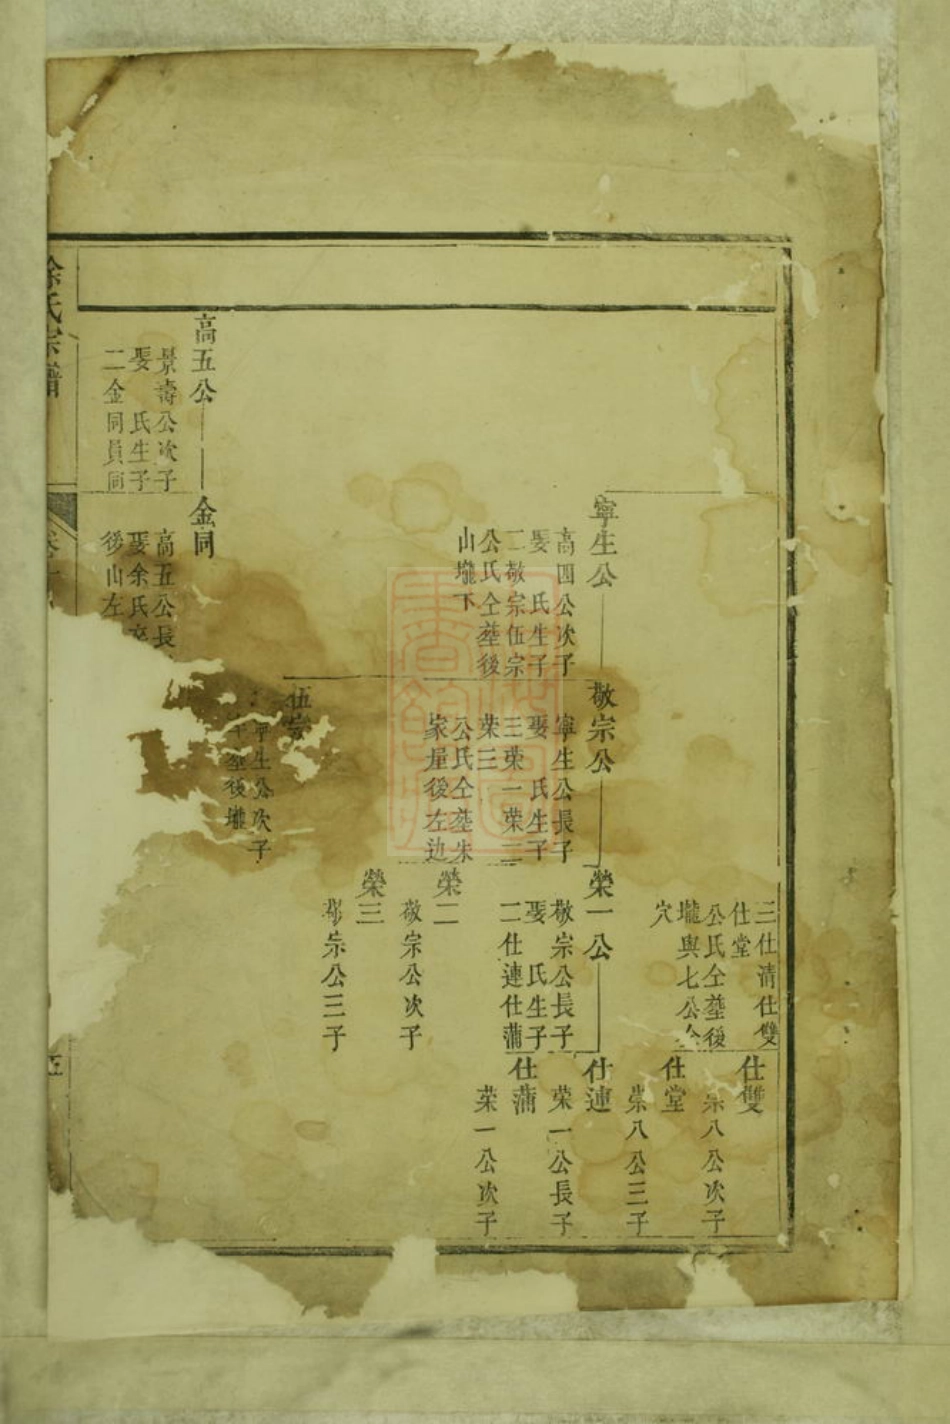 三仕清仕雙
仕堂
公氏仝塟後
壠與七公仝
穴
仕雙
榮八公次子
仕堂
榮八公三子
寧生公
高四公次子
娶　氏生子
二敬宗伍宗
公氏仝塟後
山壠下
敬宗公
寧生公長子
娶　氏生子
三荣一荣二
荣三
公氏仝塟朱
家屋後左边
榮一公
敬宗公長子
娶　氏生子
二仕連仕蒲
仕連
荣一公長子
仕蒲
荣一公次子
榮二
敬宗公次子
榮三
敬宗公三子
伍宗
寧生公次子
塟後壠
高五公
景壽公次子
娶　氏生子
二金同員同
金同
高五公長
娶余氏卒
後山左
氏宗譜